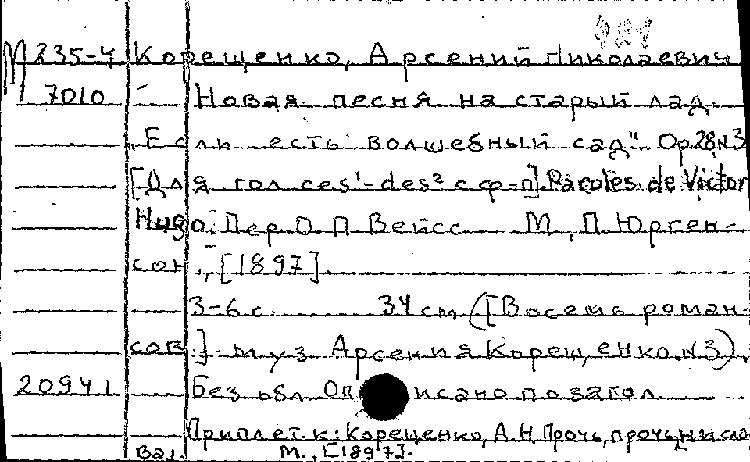 М 235-4 Корещенко, Арсений Николаевич
7010 Новая песня на старый лад.
„Если есть волшебный сад" Op 28 N3
[Для гол ces¹-des² с ф-п]. Paroles de Victor
Hugo. Пер. О. П Вейсс М., П. Юрген-
сон, [1897].
3-6 с 34 cm ([Восемь роман-
сов] муз Арсения Корещенко. N3).
20941 Без обл Оп исано по загол
Приплет. к: Корещенко, А. Н. Прочь, прочь
М., [1897].